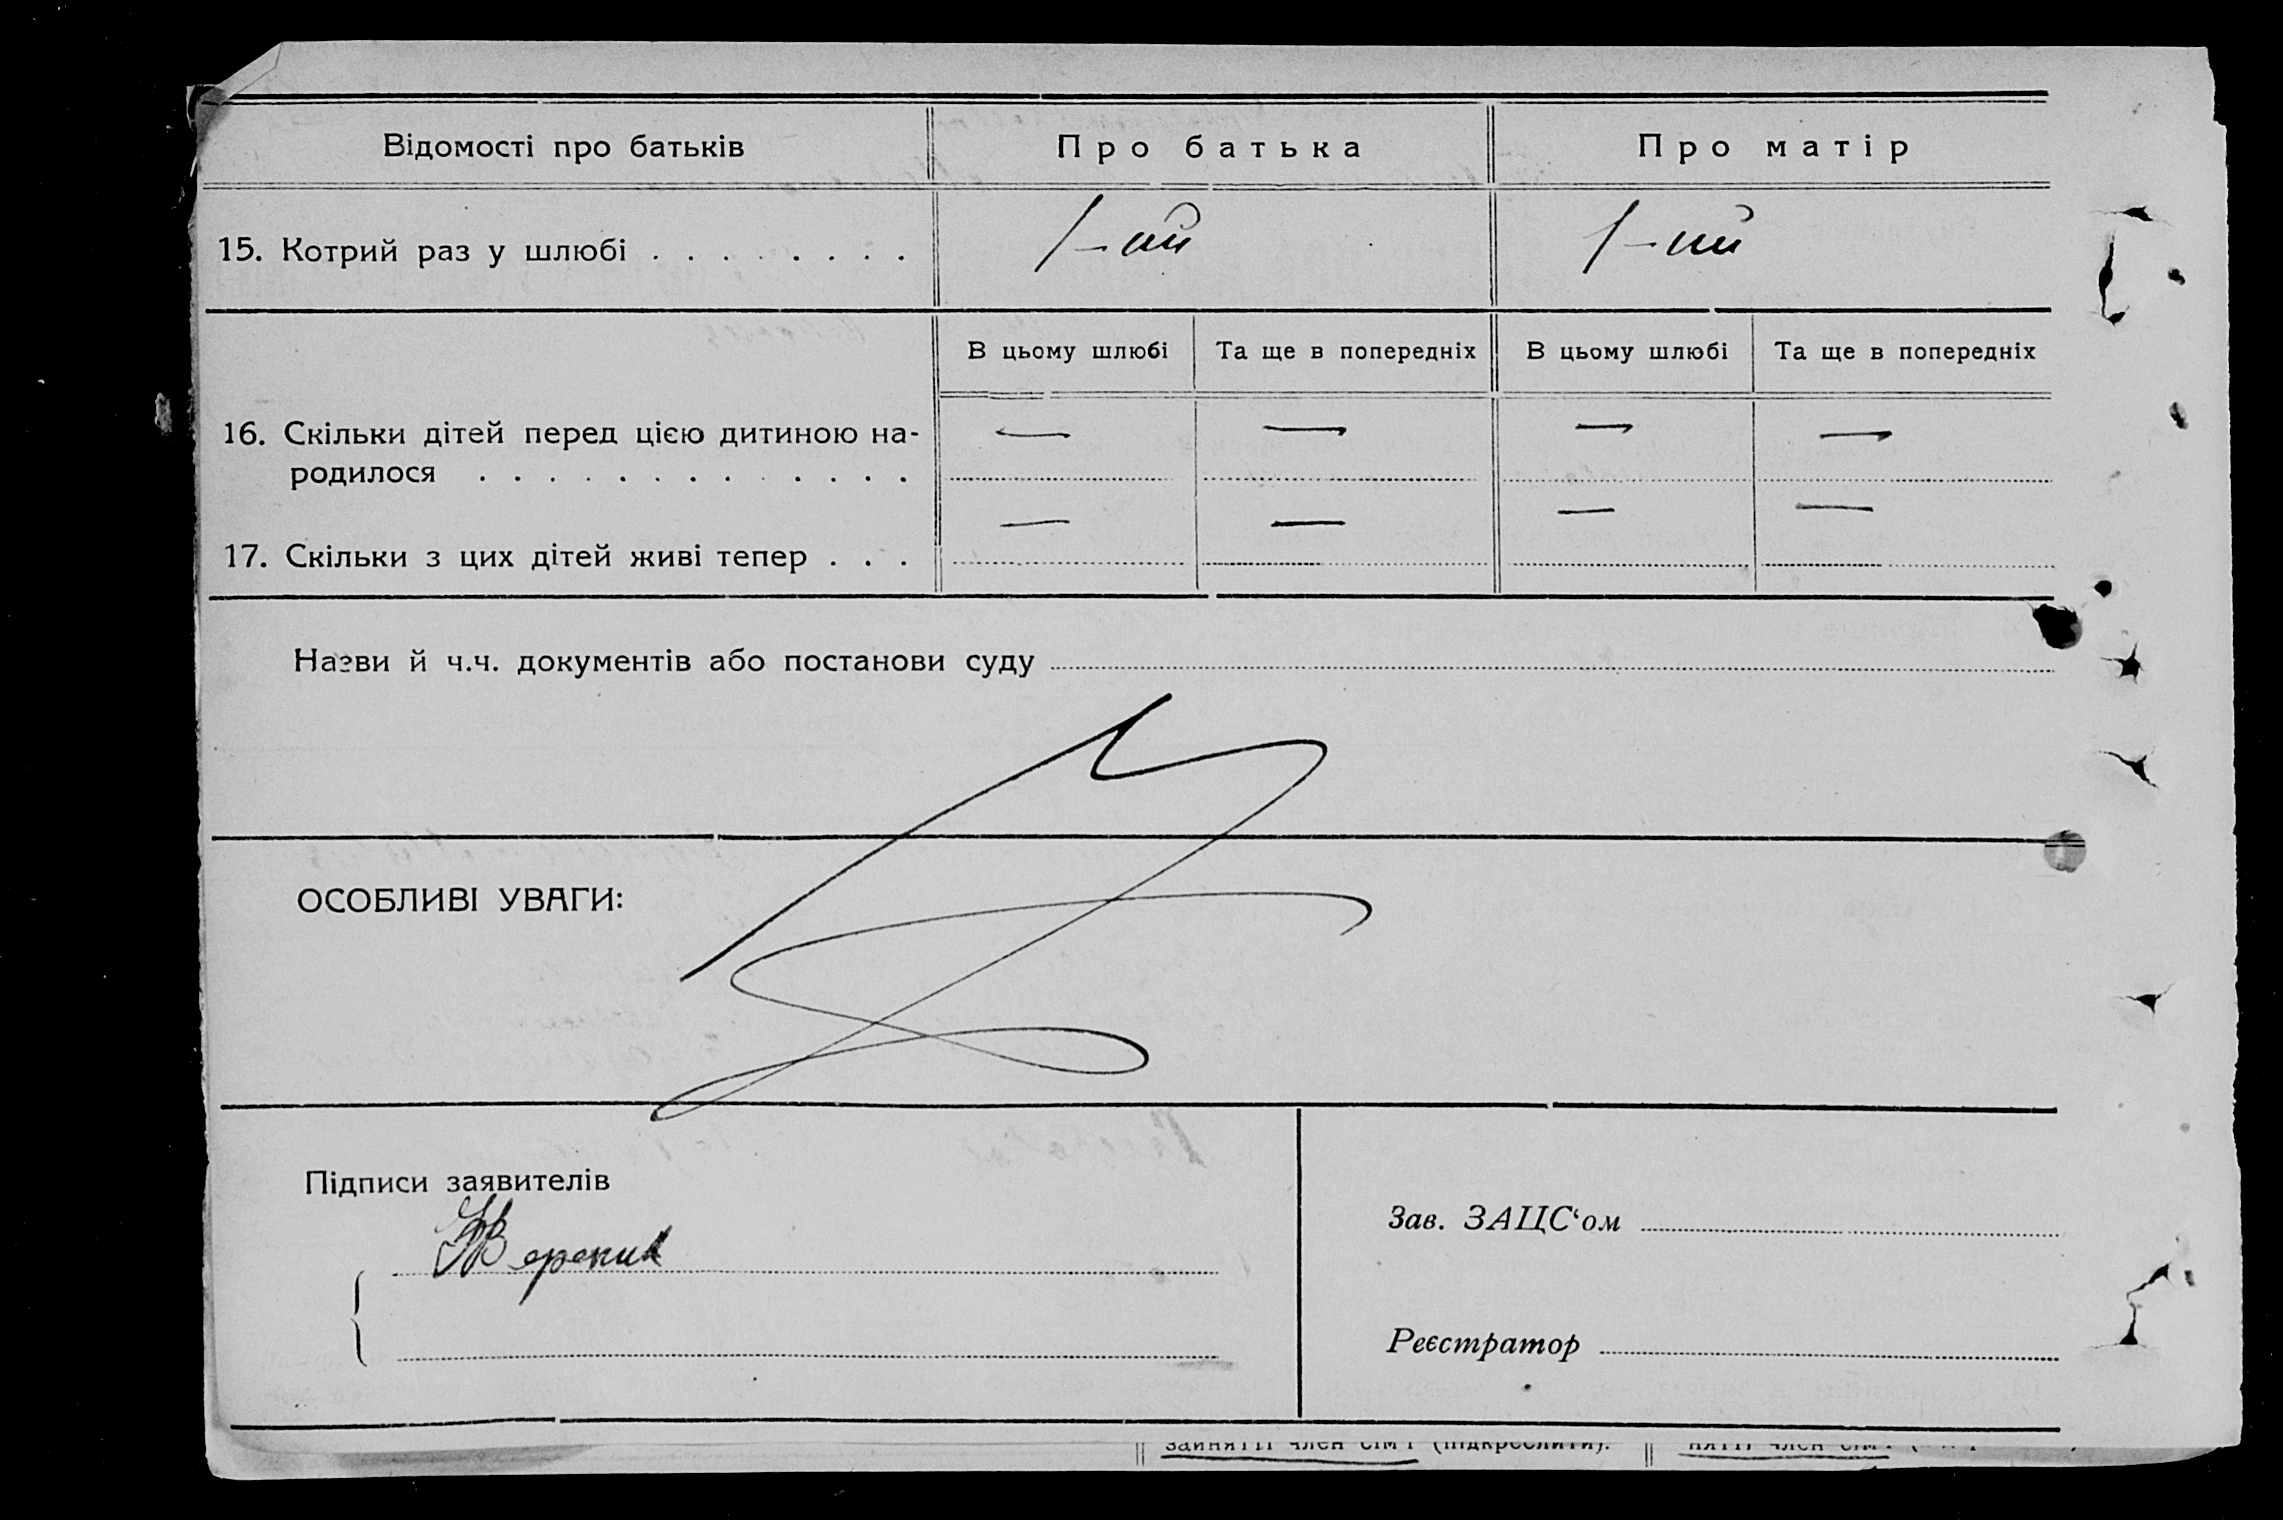 Відомості про батьків Про батька Про матір
15. Котрий раз у шлюбі . . . . . . . . 1-ий 1-ий
В цьому шлюбі Та ще в попередніх В цьому шлюбі Та ще в попередніх
16. Скільки дітей перед цією дитиною на- — — — —
родилося . . . . . . . . . . . . .
17. Скільки з цих дітей живі тепер . . . — — — —
Назви й ч.ч. документів або постанови суду
ОСОБЛИВІ УВАГИ:
Підписи заявителів
Зав. ЗАЦС‘ом
Реєстратор
зайнятті член сім'ї (підкреслити).